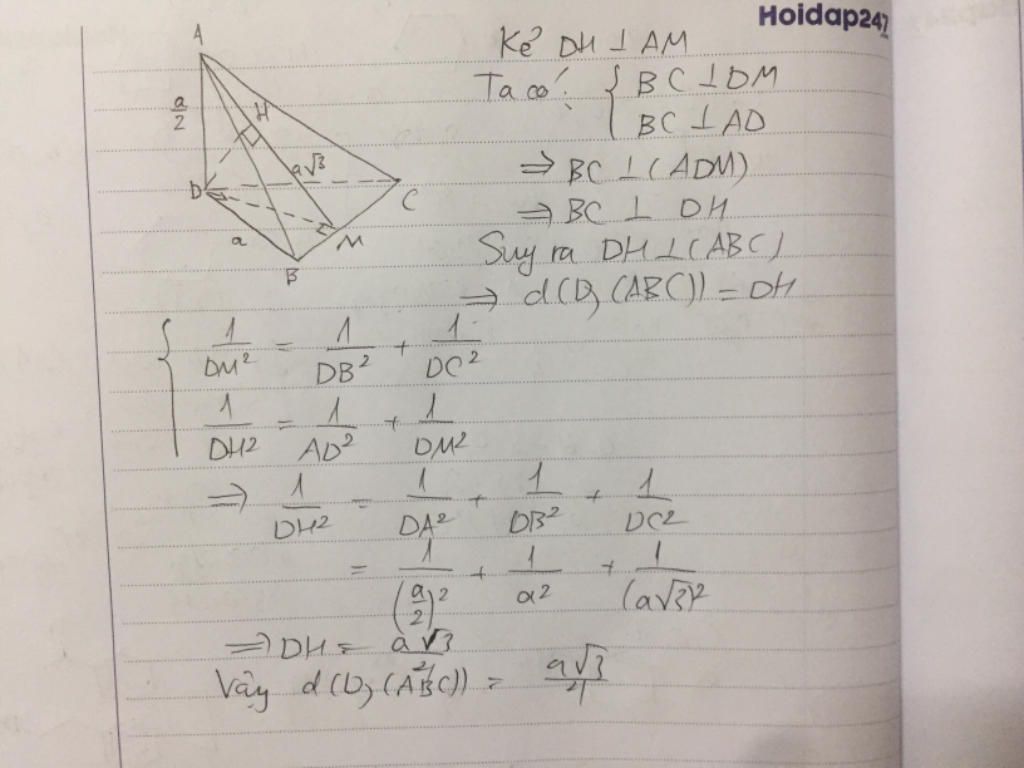 Hoidap247
Kẻ DH ⊥ AM
Ta có: { BC ⊥ DM
BC ⊥ AD
⇒ BC ⊥ (ADM)
⇒ BC ⊥ DH
Suy ra DH ⊥ (ABC)
⇒ d(D, (ABC)) = DH
A
a/2
H
a√3
D
C
a
M
B
{ 1/DM² = 1/DB² + 1/DC²
1/DH² = 1/AD² + 1/DM²
⇒ 1/DH² = 1/DA² + 1/DB² + 1/DC²
= 1/(a/2)² + 1/a² + 1/(a√3)²
⇒ DH = a√3/4
Vậy d(D, (ABC)) = a√3/4